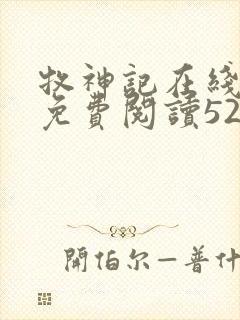 牧神記在綫
免費閱讀52
開伯尔—普什